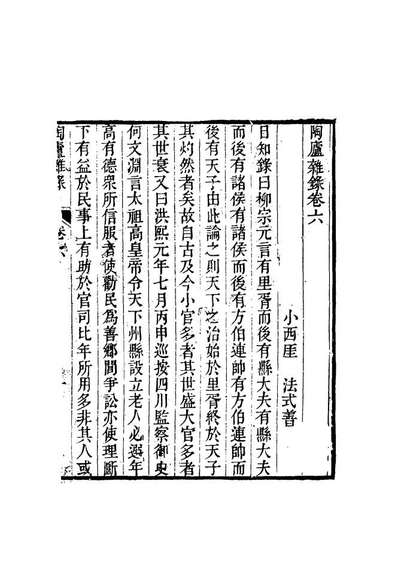 陶廬雜錄卷六
小西厓　法式善
日知錄曰柳宗元言有里胥而後有縣大夫有縣大夫
而後有諸侯有諸侯而後有方伯連帥有方伯連帥而
後有天子由此論之則天下之治始於里胥終於天子
其灼然者矣故自古及今小官多者其世盛大官多者
其世衰又曰洪熙元年七月丙申巡按四川監察御史
何文淵言太祖高皇帝令天下州縣設立老人必選年
高有德衆所信服者使勸民爲善鄉閭爭訟亦使理斷
下有益於民事上有助於官司比年所用多非其人或
陶廬雜錄　卷六